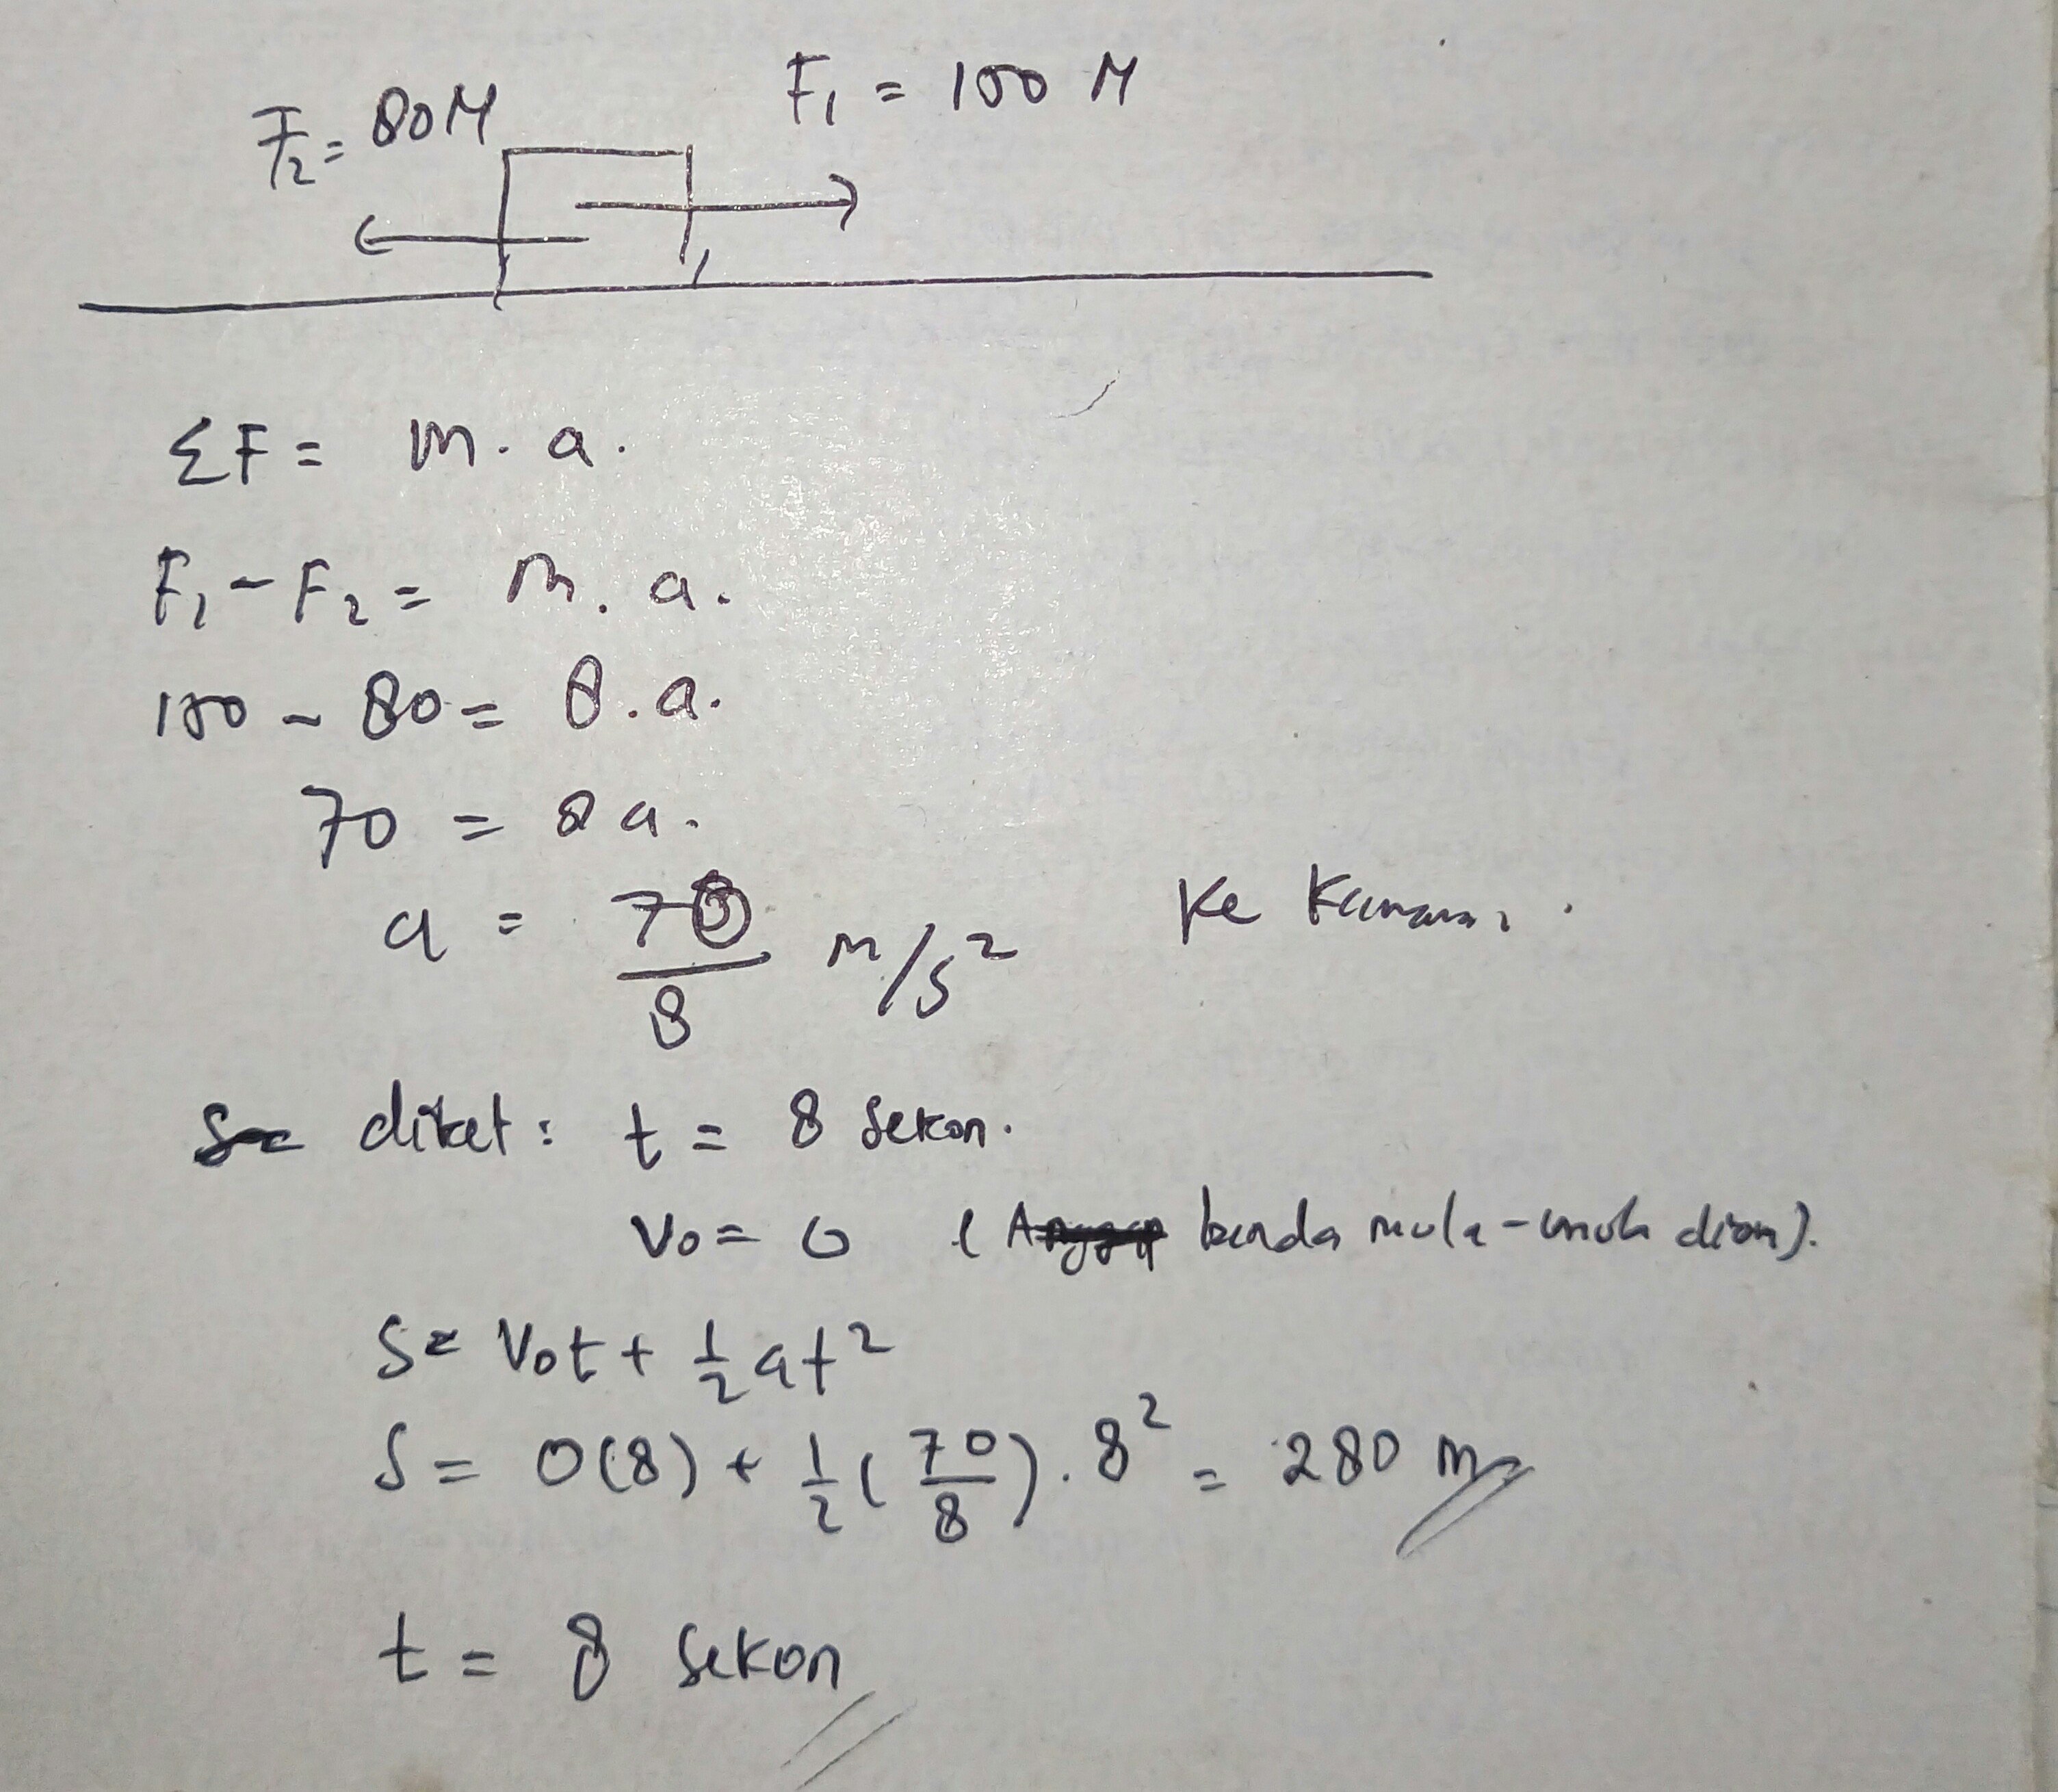 F₂ = 80 N
F₁ = 150 N
ΣF = m . a .
F₁ - F₂ = m . a .
150 - 80 = 8 . a .
70 = 8 a .
a = 70/8 m/s² Ke Kanan .
diket : t = 8 sekon .
V₀ = 0 ( benda mula-mula diam ) .
S = V₀t + 1/2 at²
S = 0(8) + 1/2 (70/8) . 8² = 280 m
t = 8 sekon